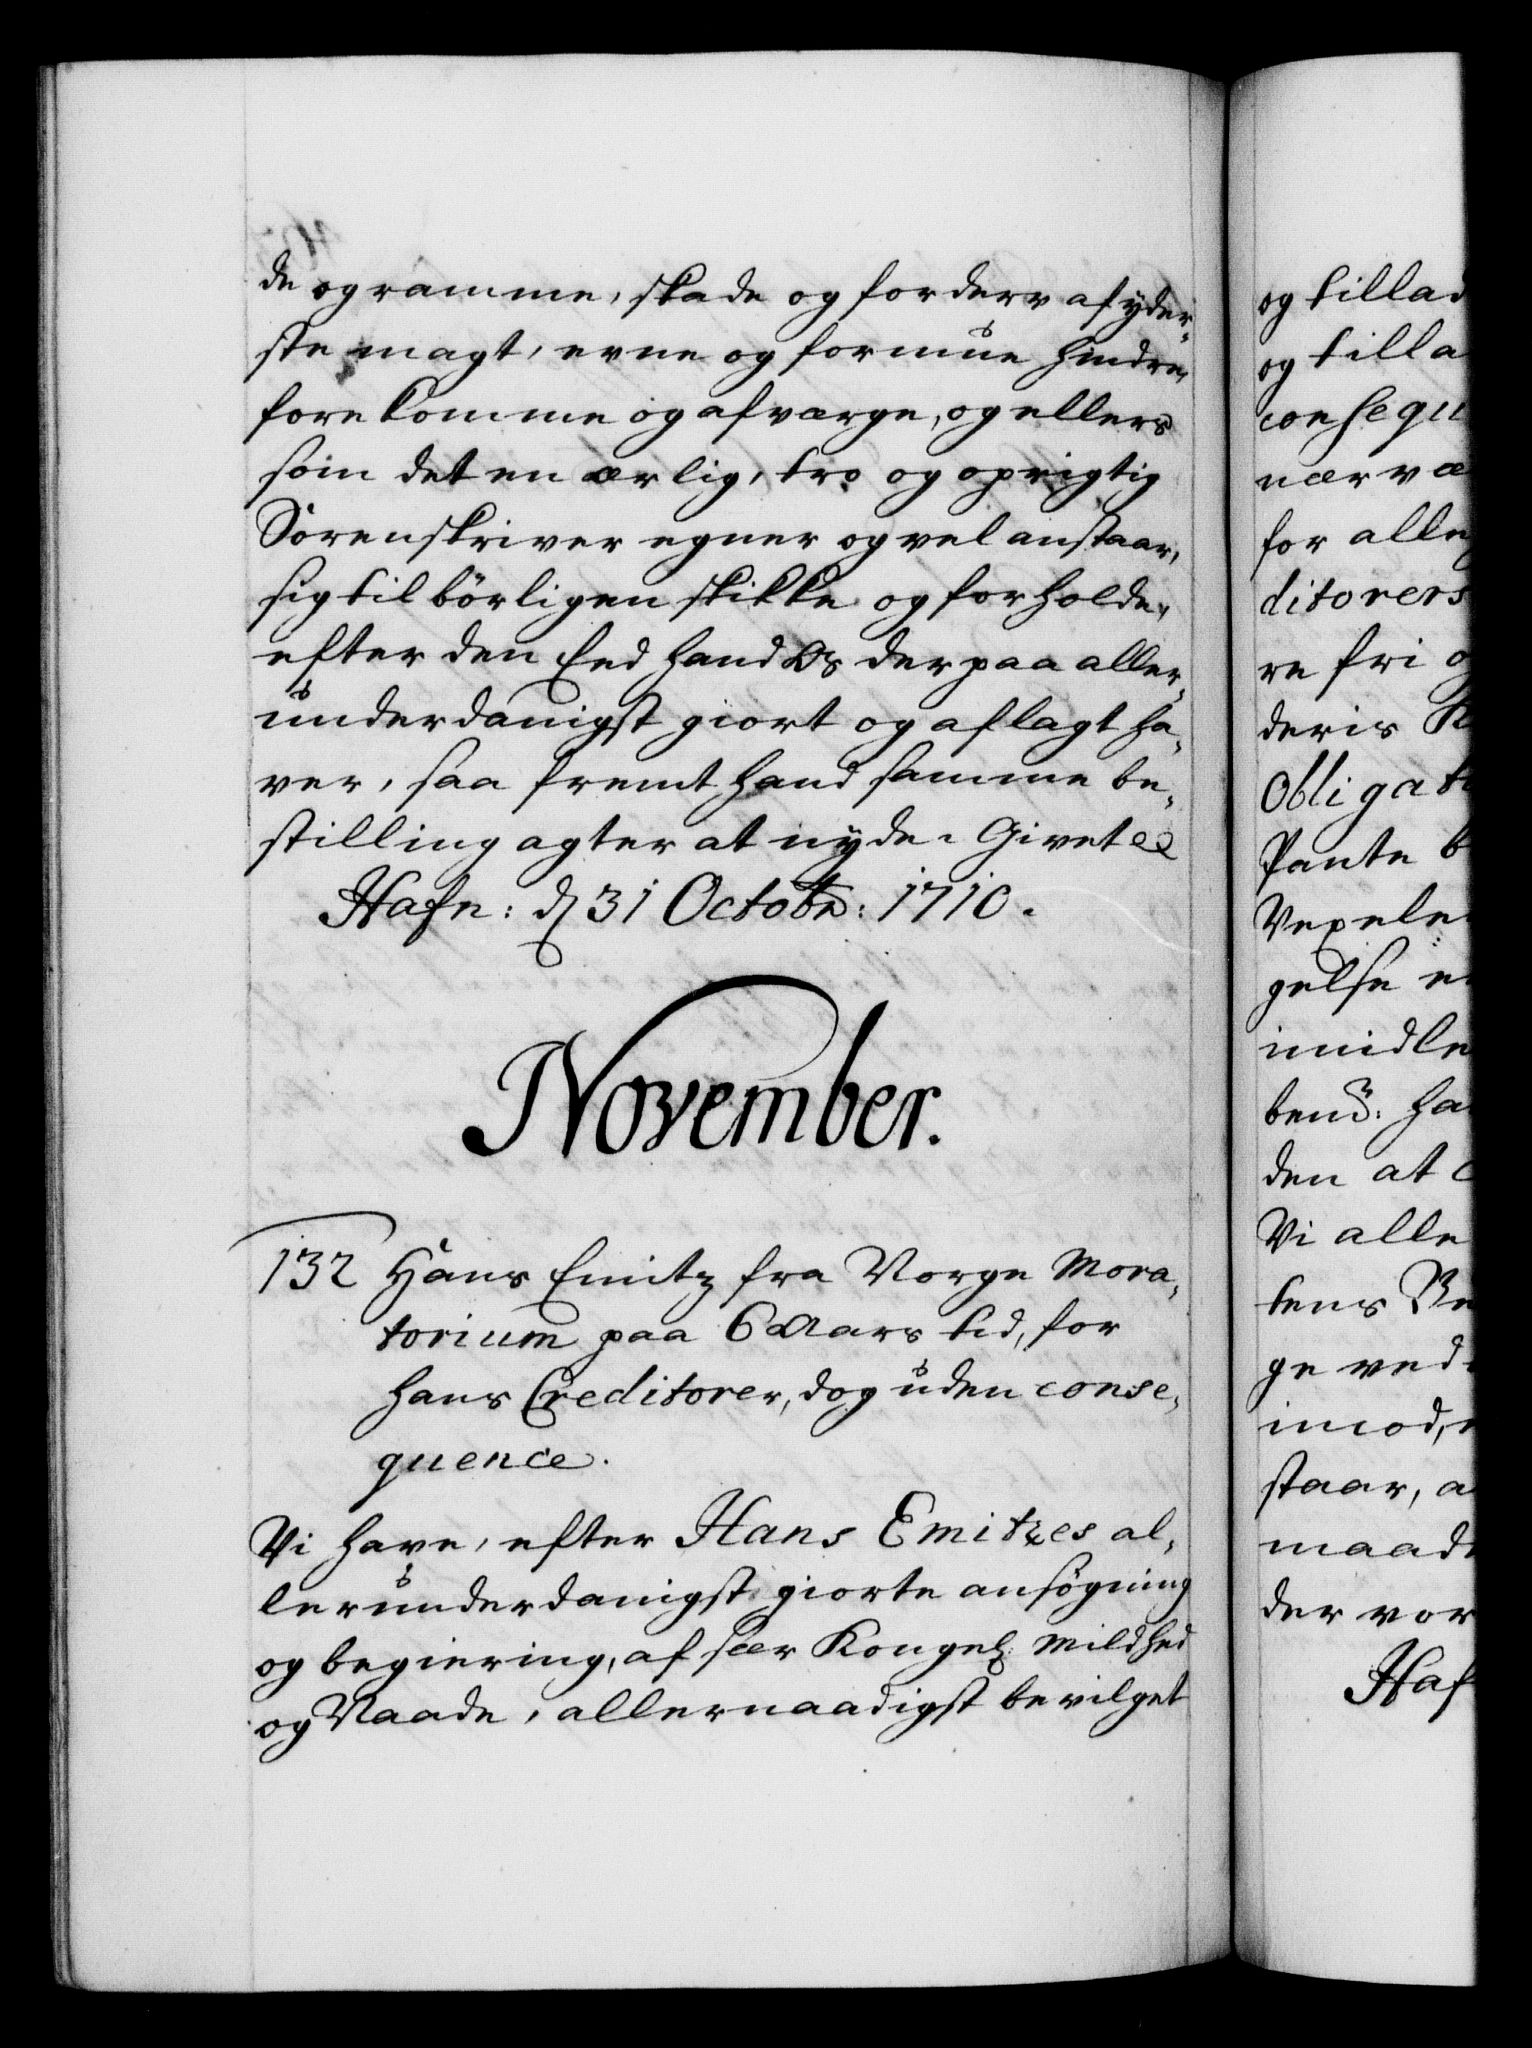 de og ramme, skade og forderv af yder-
ste magt, evne og formue hindre,
forekomme og afværge, og ellers
som det en ærlig, tro og oprigtig
Sorenskriver egner og vel anstaar,
sig tilbörligen skikke og forholde,
efter den Eed hand Os derpaa aller-
underdanigst giort og aflagt ha-
ver, saa fremt hand samme be-
stilling agter at nyde. Givet
Hafn: d 31 Octobr: 1710.
November.
132 Hans Emitz fra Norge Mora-
torium paa 6 Aars tid, for
hans Creditorer, dog uden conse-
quence.
Vi have, efter Hans Emitzes al-
lerunderdanigst giorte ansøgning
og begiering, af sær Kongel: Mildhed
og Naade, allernaadigst bevilget
og tillad
og tilla
consequ
nærvæ
for alle
ditorers
re fri o
deris
Obligat
Pante b
Vexele
gelse e
imidle
bemd: ha
den at
Vi alle
tens
ge ved
imod,
staar, a
maad
der vor
Haf